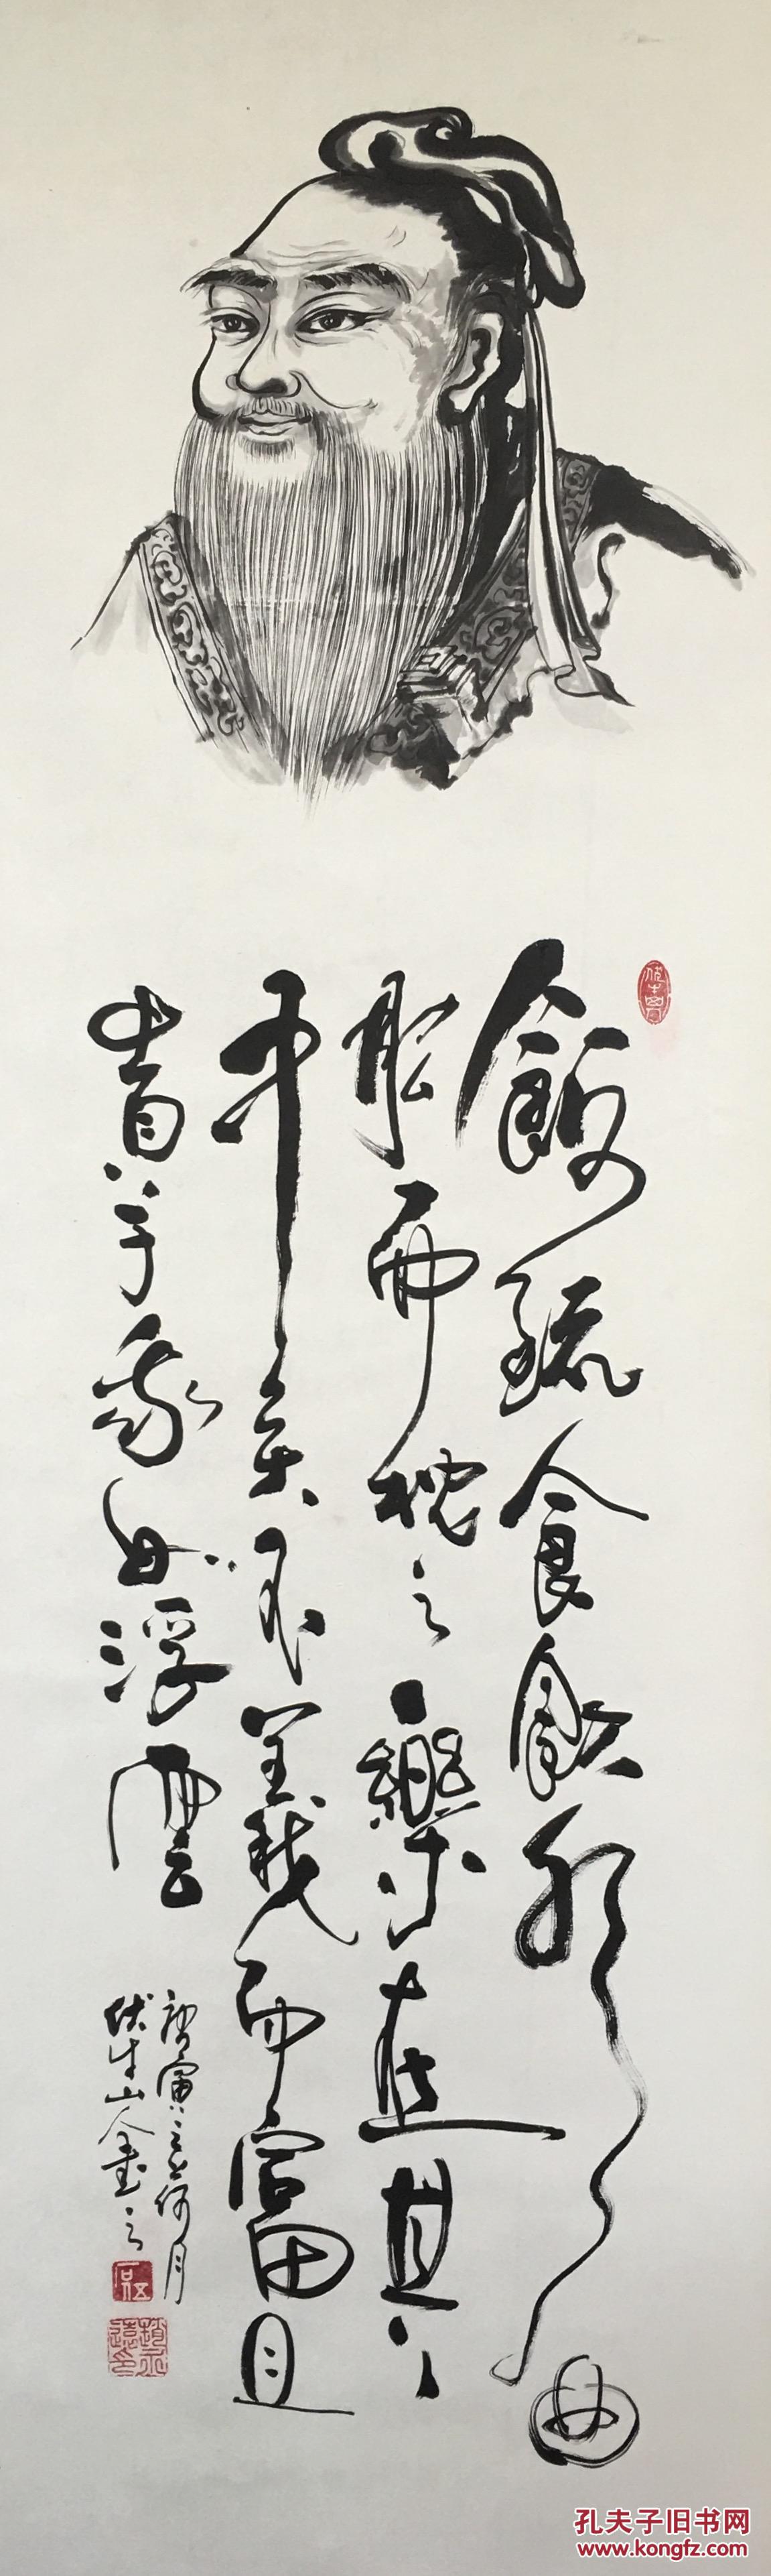 飯疏食飲水曲
肱而枕之樂在其
中矣不義而富且
貴于我如浮雲
庚寅之荷月
伏牛山人
孔夫子旧书网
www.kongfz.com